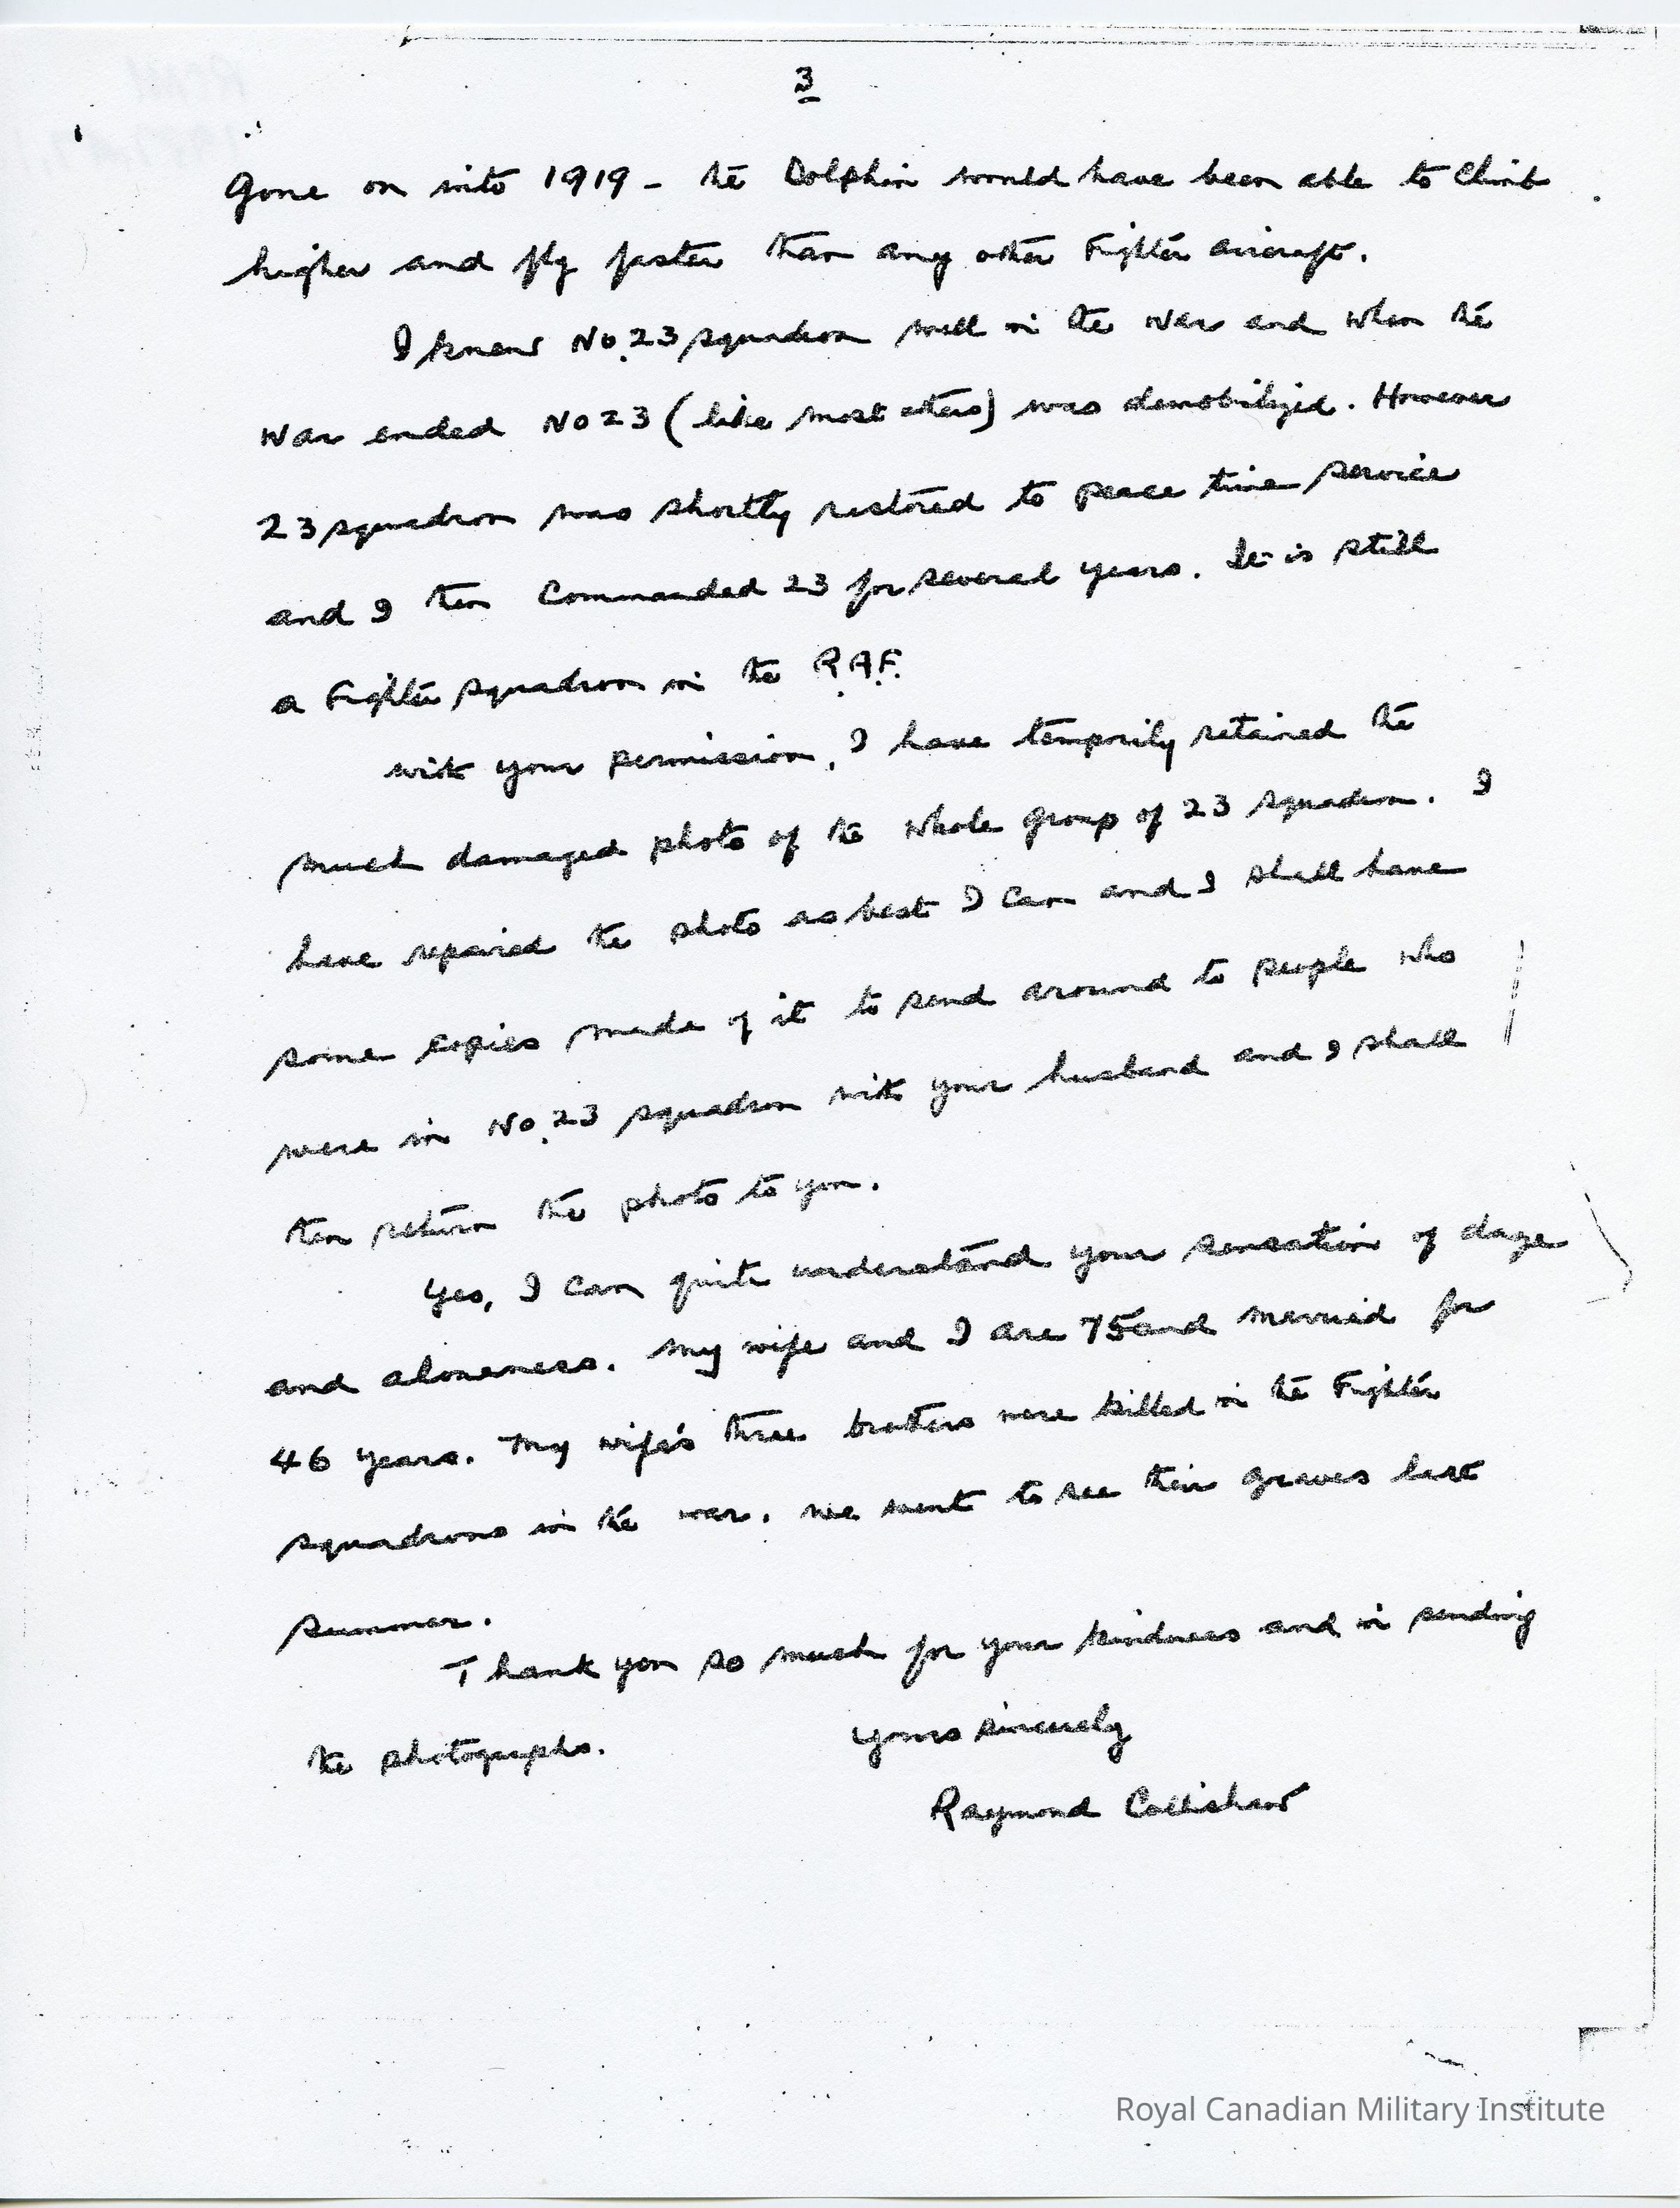 3
Gone on into 1919 - the Dolphin would have been able to Climb
higher and fly faster than any other Fighter aircraft.
I knew No. 23 squadron well in the War and when the
War ended No 23 (like most others) was demobilized. However
23 squadron was shortly restored to peace time service
and I then Commanded 23 for several years. It is still
a Fighter squadron in the R.A.F.
With your permission, I have temporily retained the
much damaged photo of the whole group of 23 squadron. I
have repaired the photo as best I can and I shall have
some copies made of it to send around to people who
were in No. 23 squadron with your husband and I shall
then return the photo to you.
Yes, I can quite understand your sensation of days
and aloneness. My wife and I are 75 and married for
46 years. My wife's three brothers were killed in the Fighter
squadrons in the war. We went to see their graves last
summer.
Thank you so much for your kindness and in sending
the photographs.
Yours sincerely
Raymond Collishaw
Royal Canadian Military Institute